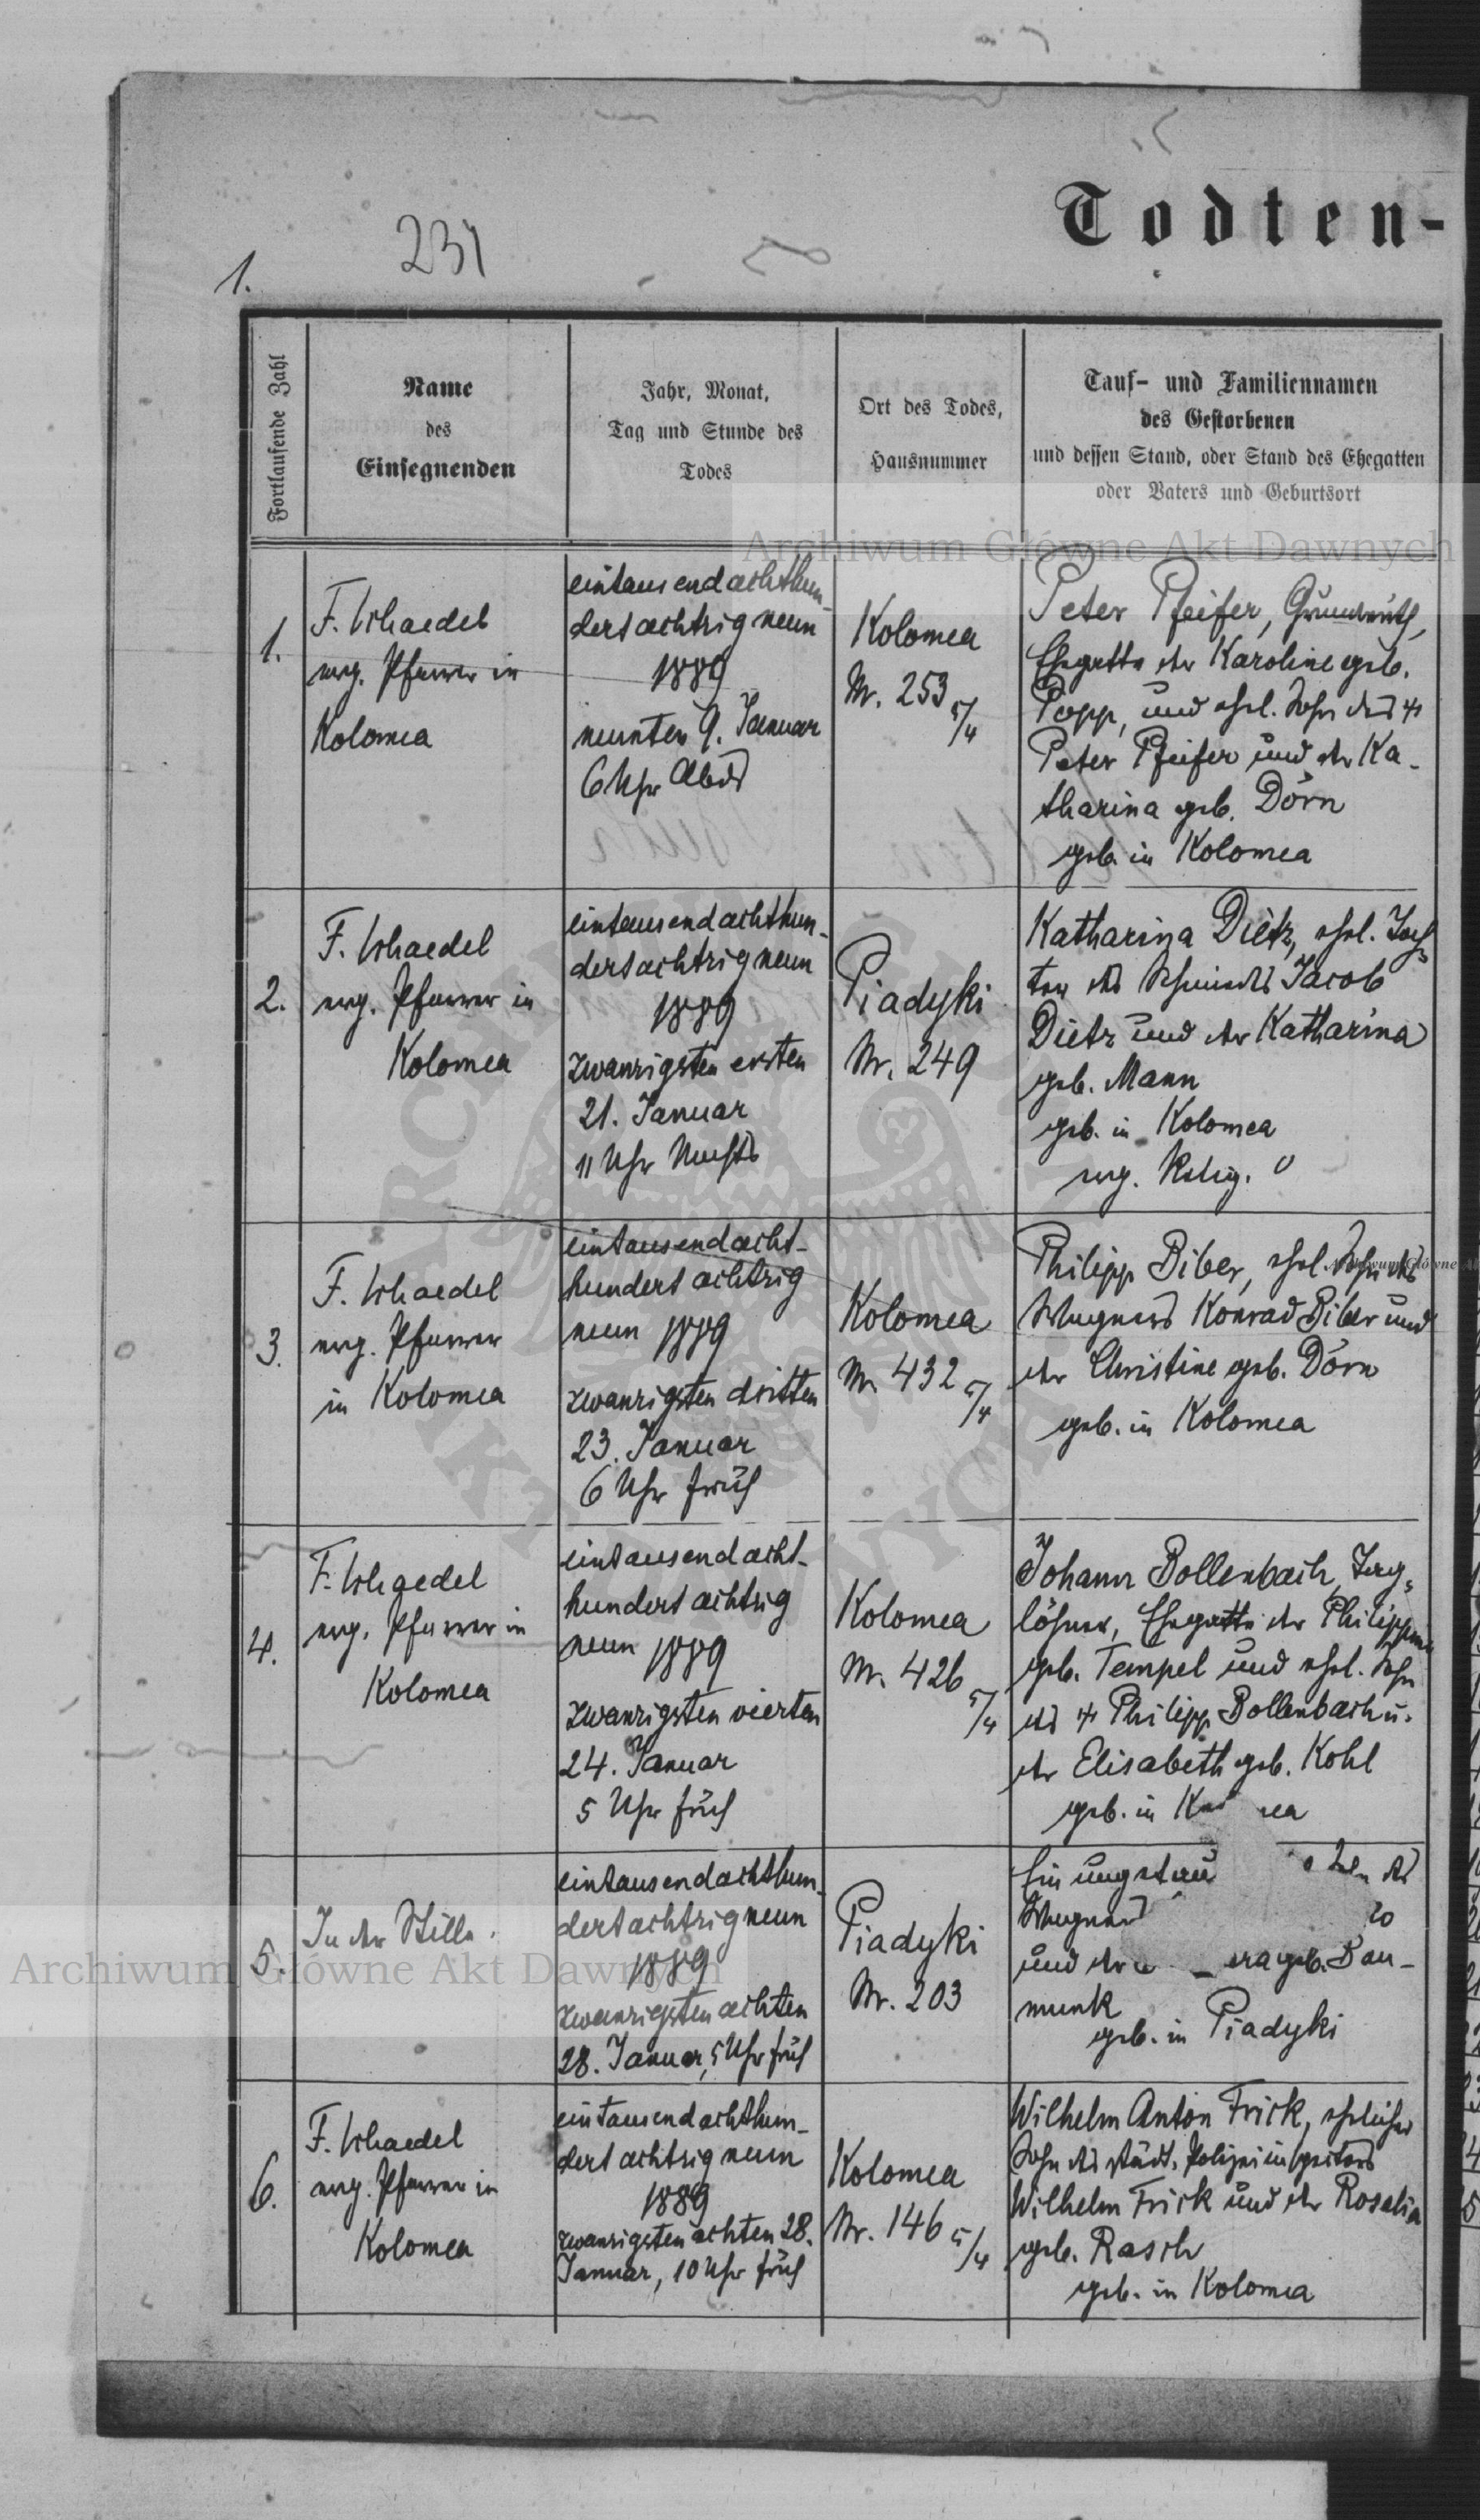 231
1.
Todten-
Fortlaufende Zahl
Name
des
Einsegnenden
Jahr, Monat,
Tag und Stunde des
Todes
Ort des Todes,
Hausnummer
Tauf- und Familiennamen
des Gestorbenen
und dessen Stand, oder Stand des Ehegatten
oder Vaters und Geburtsort
Archiwum Główne Akt Dawnych
1.
F. Schaedel
evg. Pfarrer in
Kolomea
eintausendachthun-
dertachtzigneun
1889
neunten 9. Januar
6 Uhr Abds
Kolomea
Nr. 253 5/4
Peter Pfeifer, Grundwirth,
Ehegatte der Karoline geb.
Popp, und ehel. Sohn des
Peter Pfeifer und der Ka-
tharina geb. Dörn
geb. in Kolomea
2.
F. Schaedel
evg. Pfarrer in
Kolomea
eintausendachthun-
dertachtzigneun
1889
zwanzigsten ersten
21. Januar
11 Uhr Nachts
Piadyki
Nr. 249
Katharina Dietz, ehel. Toch-
ter des Schmieds Jacob
Dietz und der Katharina
geb. Mann
geb. in Kolomea
evg. Relig.
3.
F. Schaedel
evg. Pfarrer
in Kolomea
eintausendacht-
hundert achtzig
neun 1889
zwanzigsten dritten
23. Januar
6 Uhr früh
Kolomea
Nr. 432 5/4
Philipp Biber, ehel. Sohn des
Wagners Konrad Biber und
der Christine geb. Dörn
geb. in Kolomea
4.
F. Schaedel
evg. Pfarrer in
Kolomea
eintausendacht-
hundert achtzig
neun 1889
zwanzigsten vierten
24. Januar
5 Uhr früh
Kolomea
Nr. 426 5/4
Johann Bollenbach, Tag-
löhner, Ehegatte der Philippine
geb. Tempel und ehel. Sohn
des Philipp Bollenbach u.
der Elisabeth geb. Kohl
geb. in
5.
In der Stille.
eintausendachthun-
dertachtzigneun
1889
zwanzigsten achten
28. Januar, 5 Uhr früh
Piadyki
Nr. 203
Ein des
Wagners
und der geb. Bau-
munk
geb. in Piadyki
Archiwum Główne Akt Dawnych
6.
F. Schaedel
evg. Pfarrer in
Kolomea
eintausendachthun-
dertachtzigneun
1889
zwanzigsten achten 28.
Januar, 10 Uhr früh
Kolomea
Nr. 146 5/4
Wilhelm Anton Frick, ehelicher
Sohn des städt. Polizeiinspectors
Wilhelm Frick und der Rosalia
geb. Rasch
geb. in Kolomea